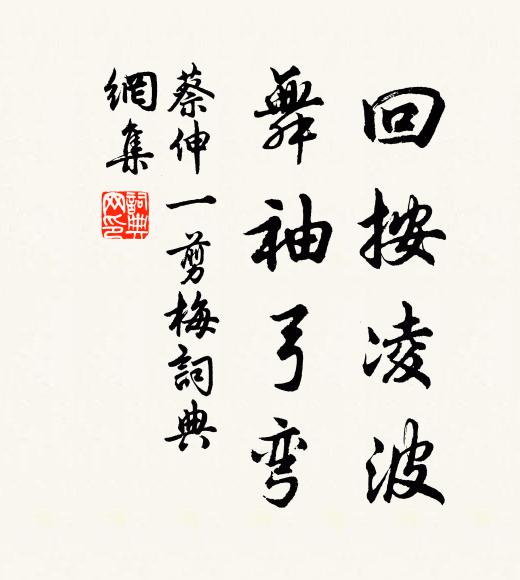 回按凌波
舞袖弓弯
蔡伸一剪梅詞典
網集
詞典
网印